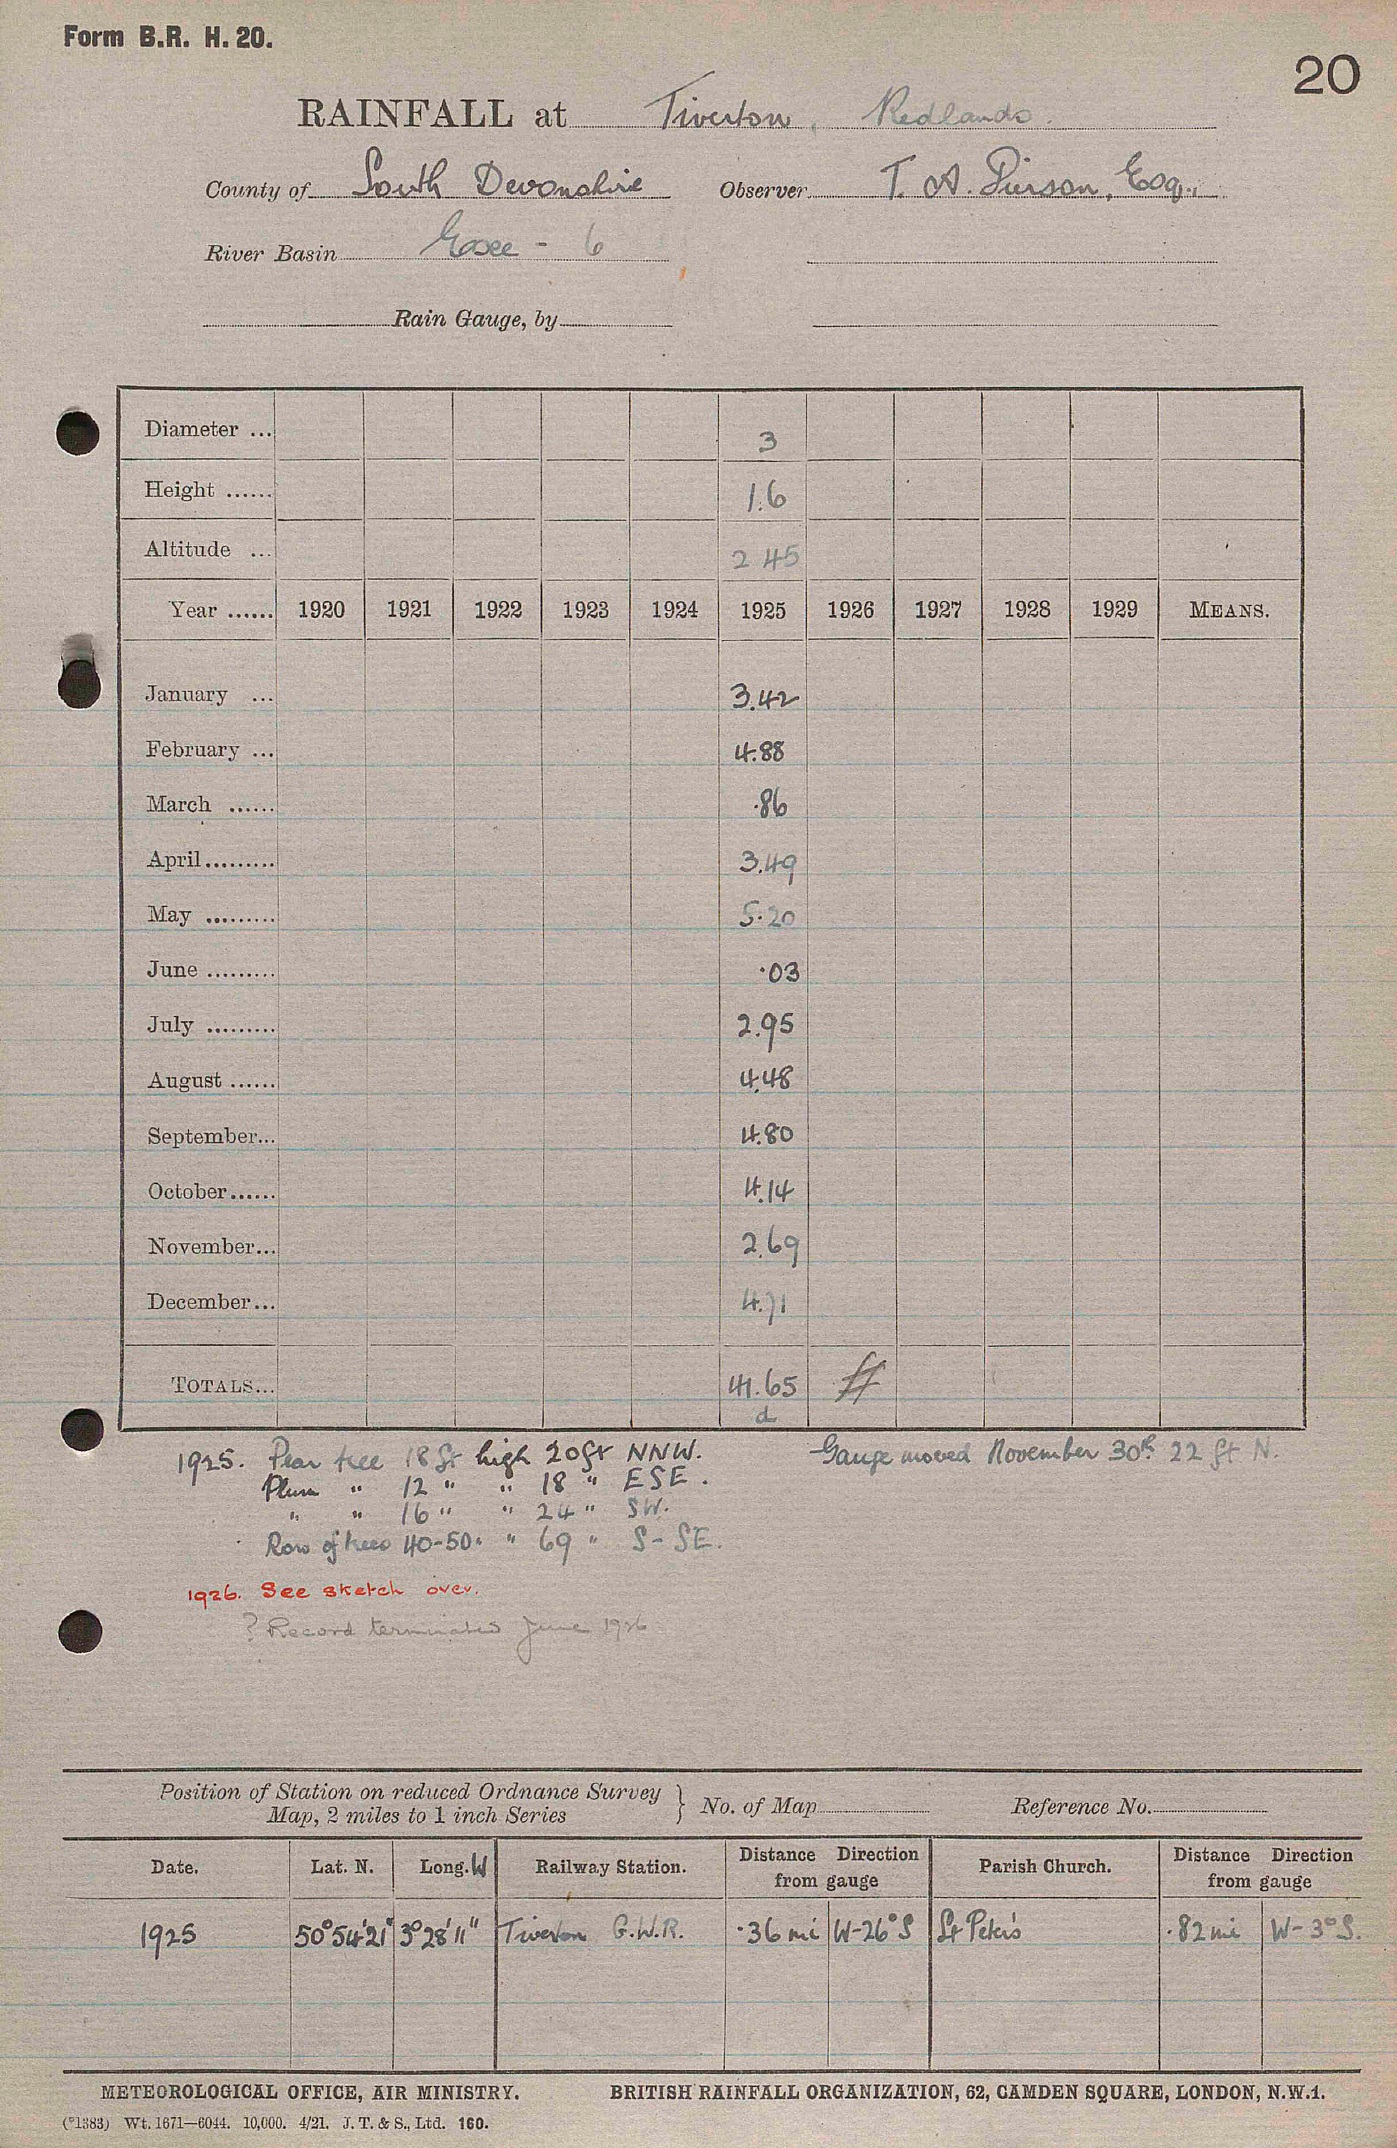 Form B.R. H. 20.
20
RAINFALL at Tiverton, Redlands.
County of South Devonshire Observer T. A. Pierson, Esq.,
River Basin Exe - 6
Rain Gauge, by
Diameter ... 3
Height ...... 1.6
Altitude ... 245
Year ...... 1920 1921 1922 1923 1924 1925 1926 1927 1928 1929 MEANS.
January ... 3.42
February ... 4.88
March ...... .86
April......... 3.49
May ......... 5.20
June ......... .03
July ......... 2.95
August ...... 4.48
September... 4.80
October...... 4.14
November... 2.69
December... 4.71
TOTALS... 41.65
d
1925. Pear tree 18 ft high 20 ft NNW. Gauge moved November 30th 22 ft N.
Plum " 12 " " 18 " ESE.
" " 16 " " 24 " SW.
Row of trees 40-50 " " 69 " S-SE.
1926. See sketch over.
? Record terminated June 1926
Position of Station on reduced Ordnance Survey
Map, 2 miles to 1 inch Series } No. of Map Reference No.
Date. Lat. N. Long. W Railway Station. Distance Direction from gauge Parish Church. Distance Direction from gauge
1925 50°54'21" 3°28'11" Tiverton G.W.R. .36 mi W-26°S St Peter's .82 mi W-3°S.
METEOROLOGICAL OFFICE, AIR MINISTRY. BRITISH RAINFALL ORGANIZATION, 62, CAMDEN SQUARE, LONDON, N.W.1.
(*1383) Wt. 1671—6044. 10,000. 4/21. J. T. & S., Ltd. 160.